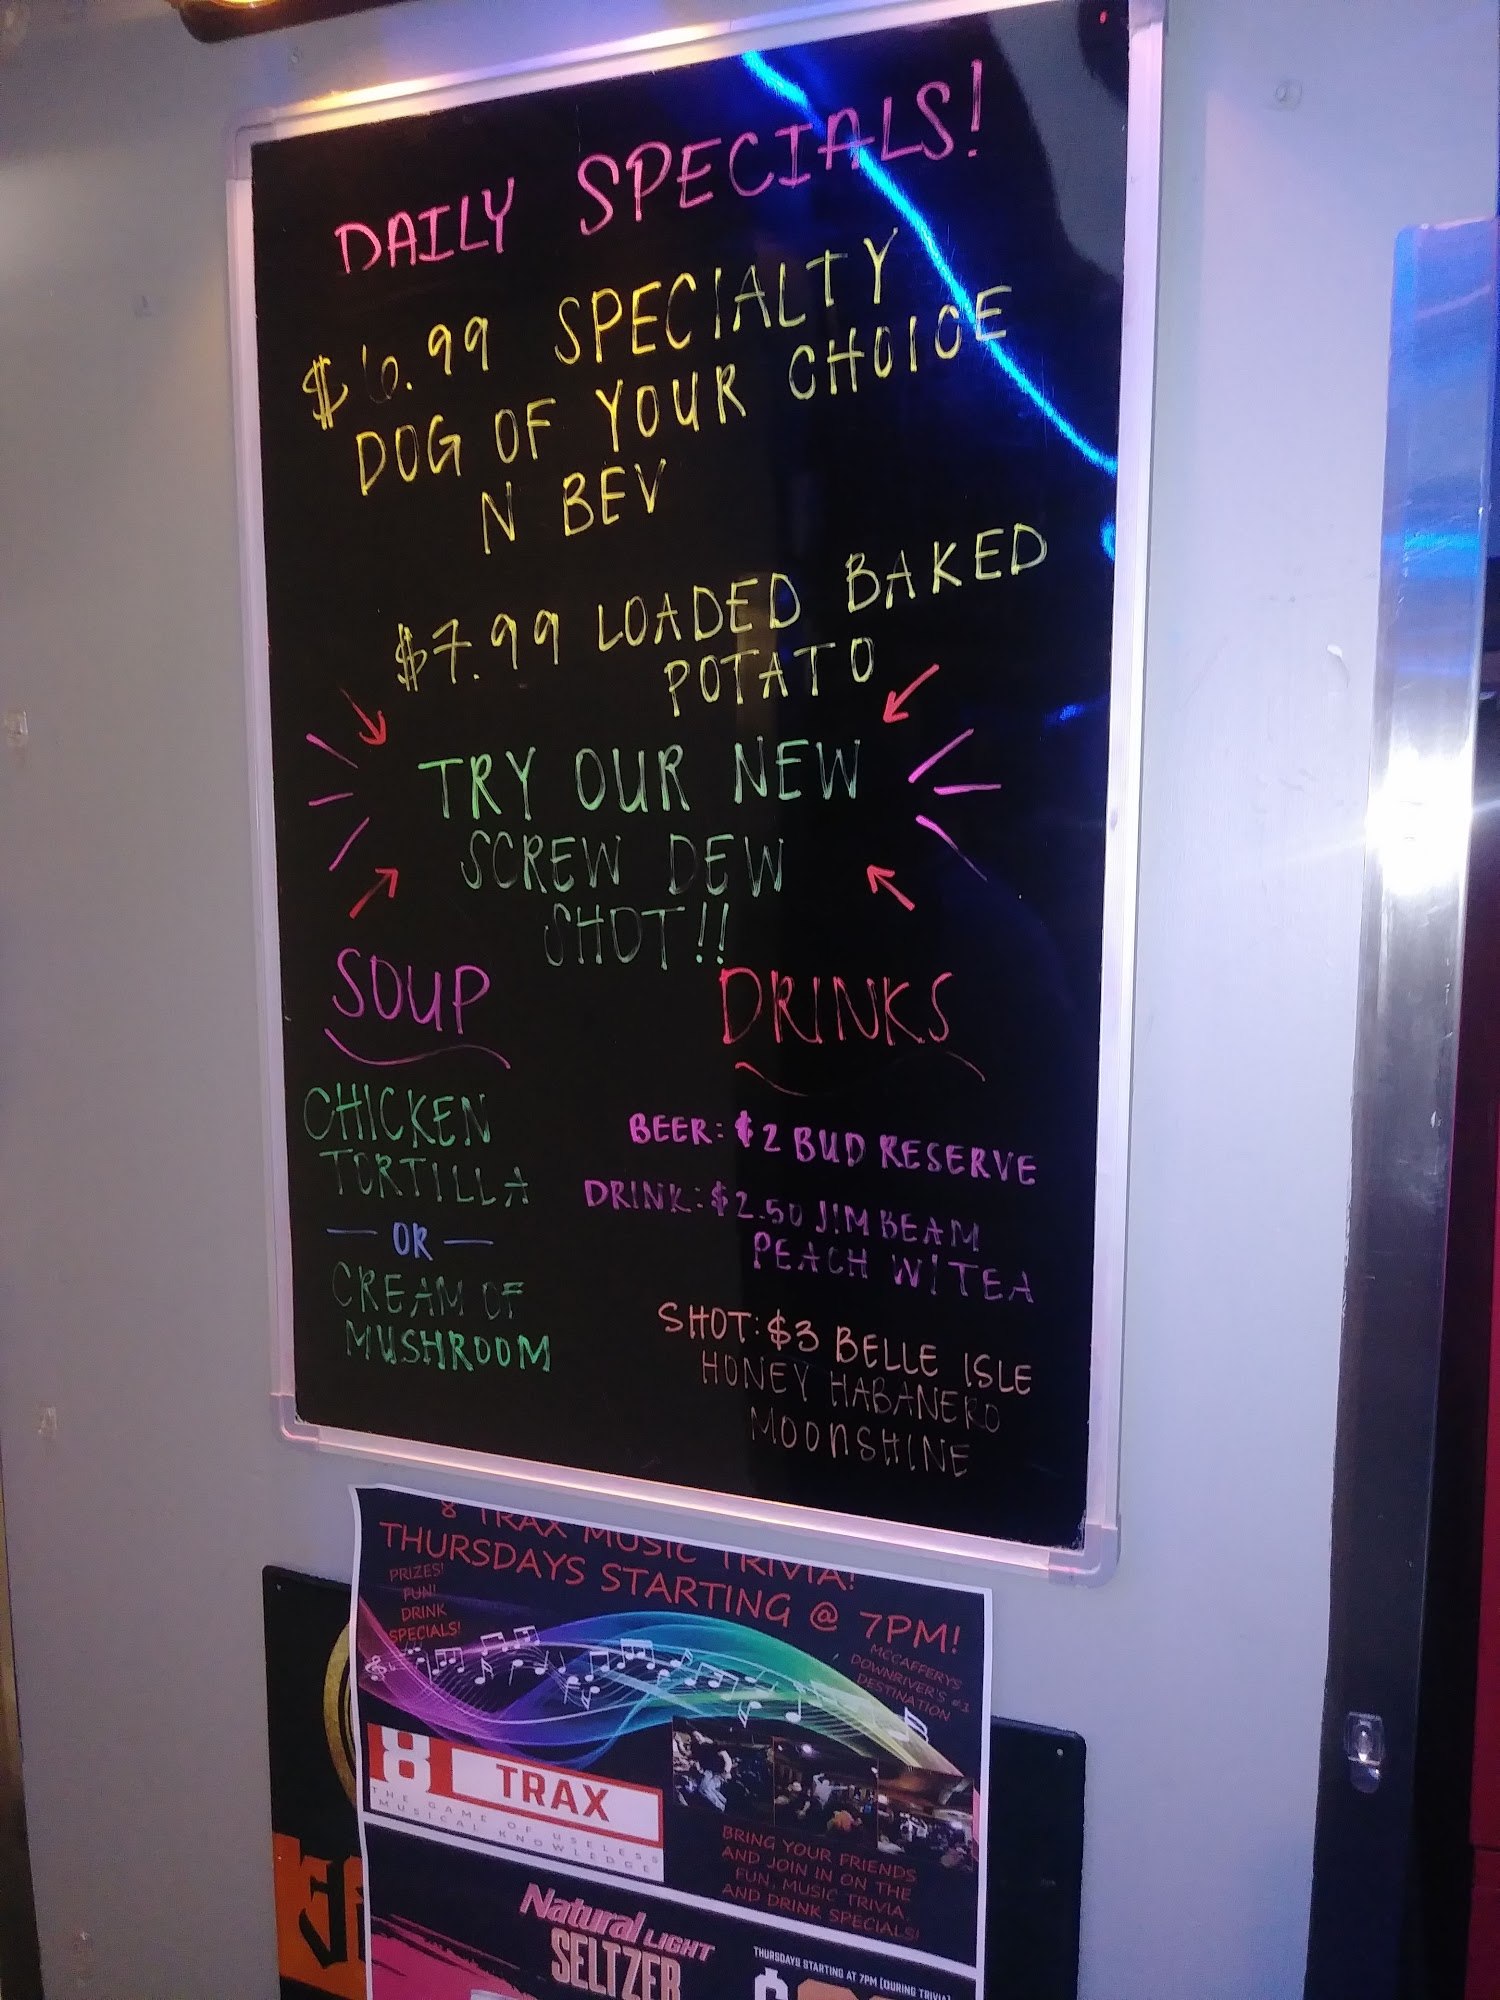 DAILY SPECIALS!
$6.99 SPECIALTY
DOG OF YOUR CHOICE
N BEV
$7.99 LOADED BAKED
POTATO
TRY OUR NEW
SCREW DEW
SHOT!!
SOUP
CHICKEN
TORTILLA
— OR —
CREAM OF
MUSHROOM
DRINKS
BEER: $2 BUD RESERVE
DRINK: $2.50 JIM BEAM
PEACH W/TEA
SHOT: $3 BELLE ISLE
HONEY HABANERO
MOONSHINE
8 TRAX MUSIC TRIVIA!
THURSDAYS STARTING @ 7PM!
PRIZES!
FUN!
DRINK
SPECIALS!
MCCAFFERYS
DOWNRIVER'S #1
DESTINATION
8 TRAX
THE GAME OF USELESS
MUSICAL KNOWLEDGE
BRING YOUR FRIENDS
AND JOIN IN ON THE
FUN, MUSIC TRIVIA,
AND DRINK SPECIALS!
Natural LIGHT
SELTZER
THURSDAYS STARTING AT 7PM (DURING TRIVIA)